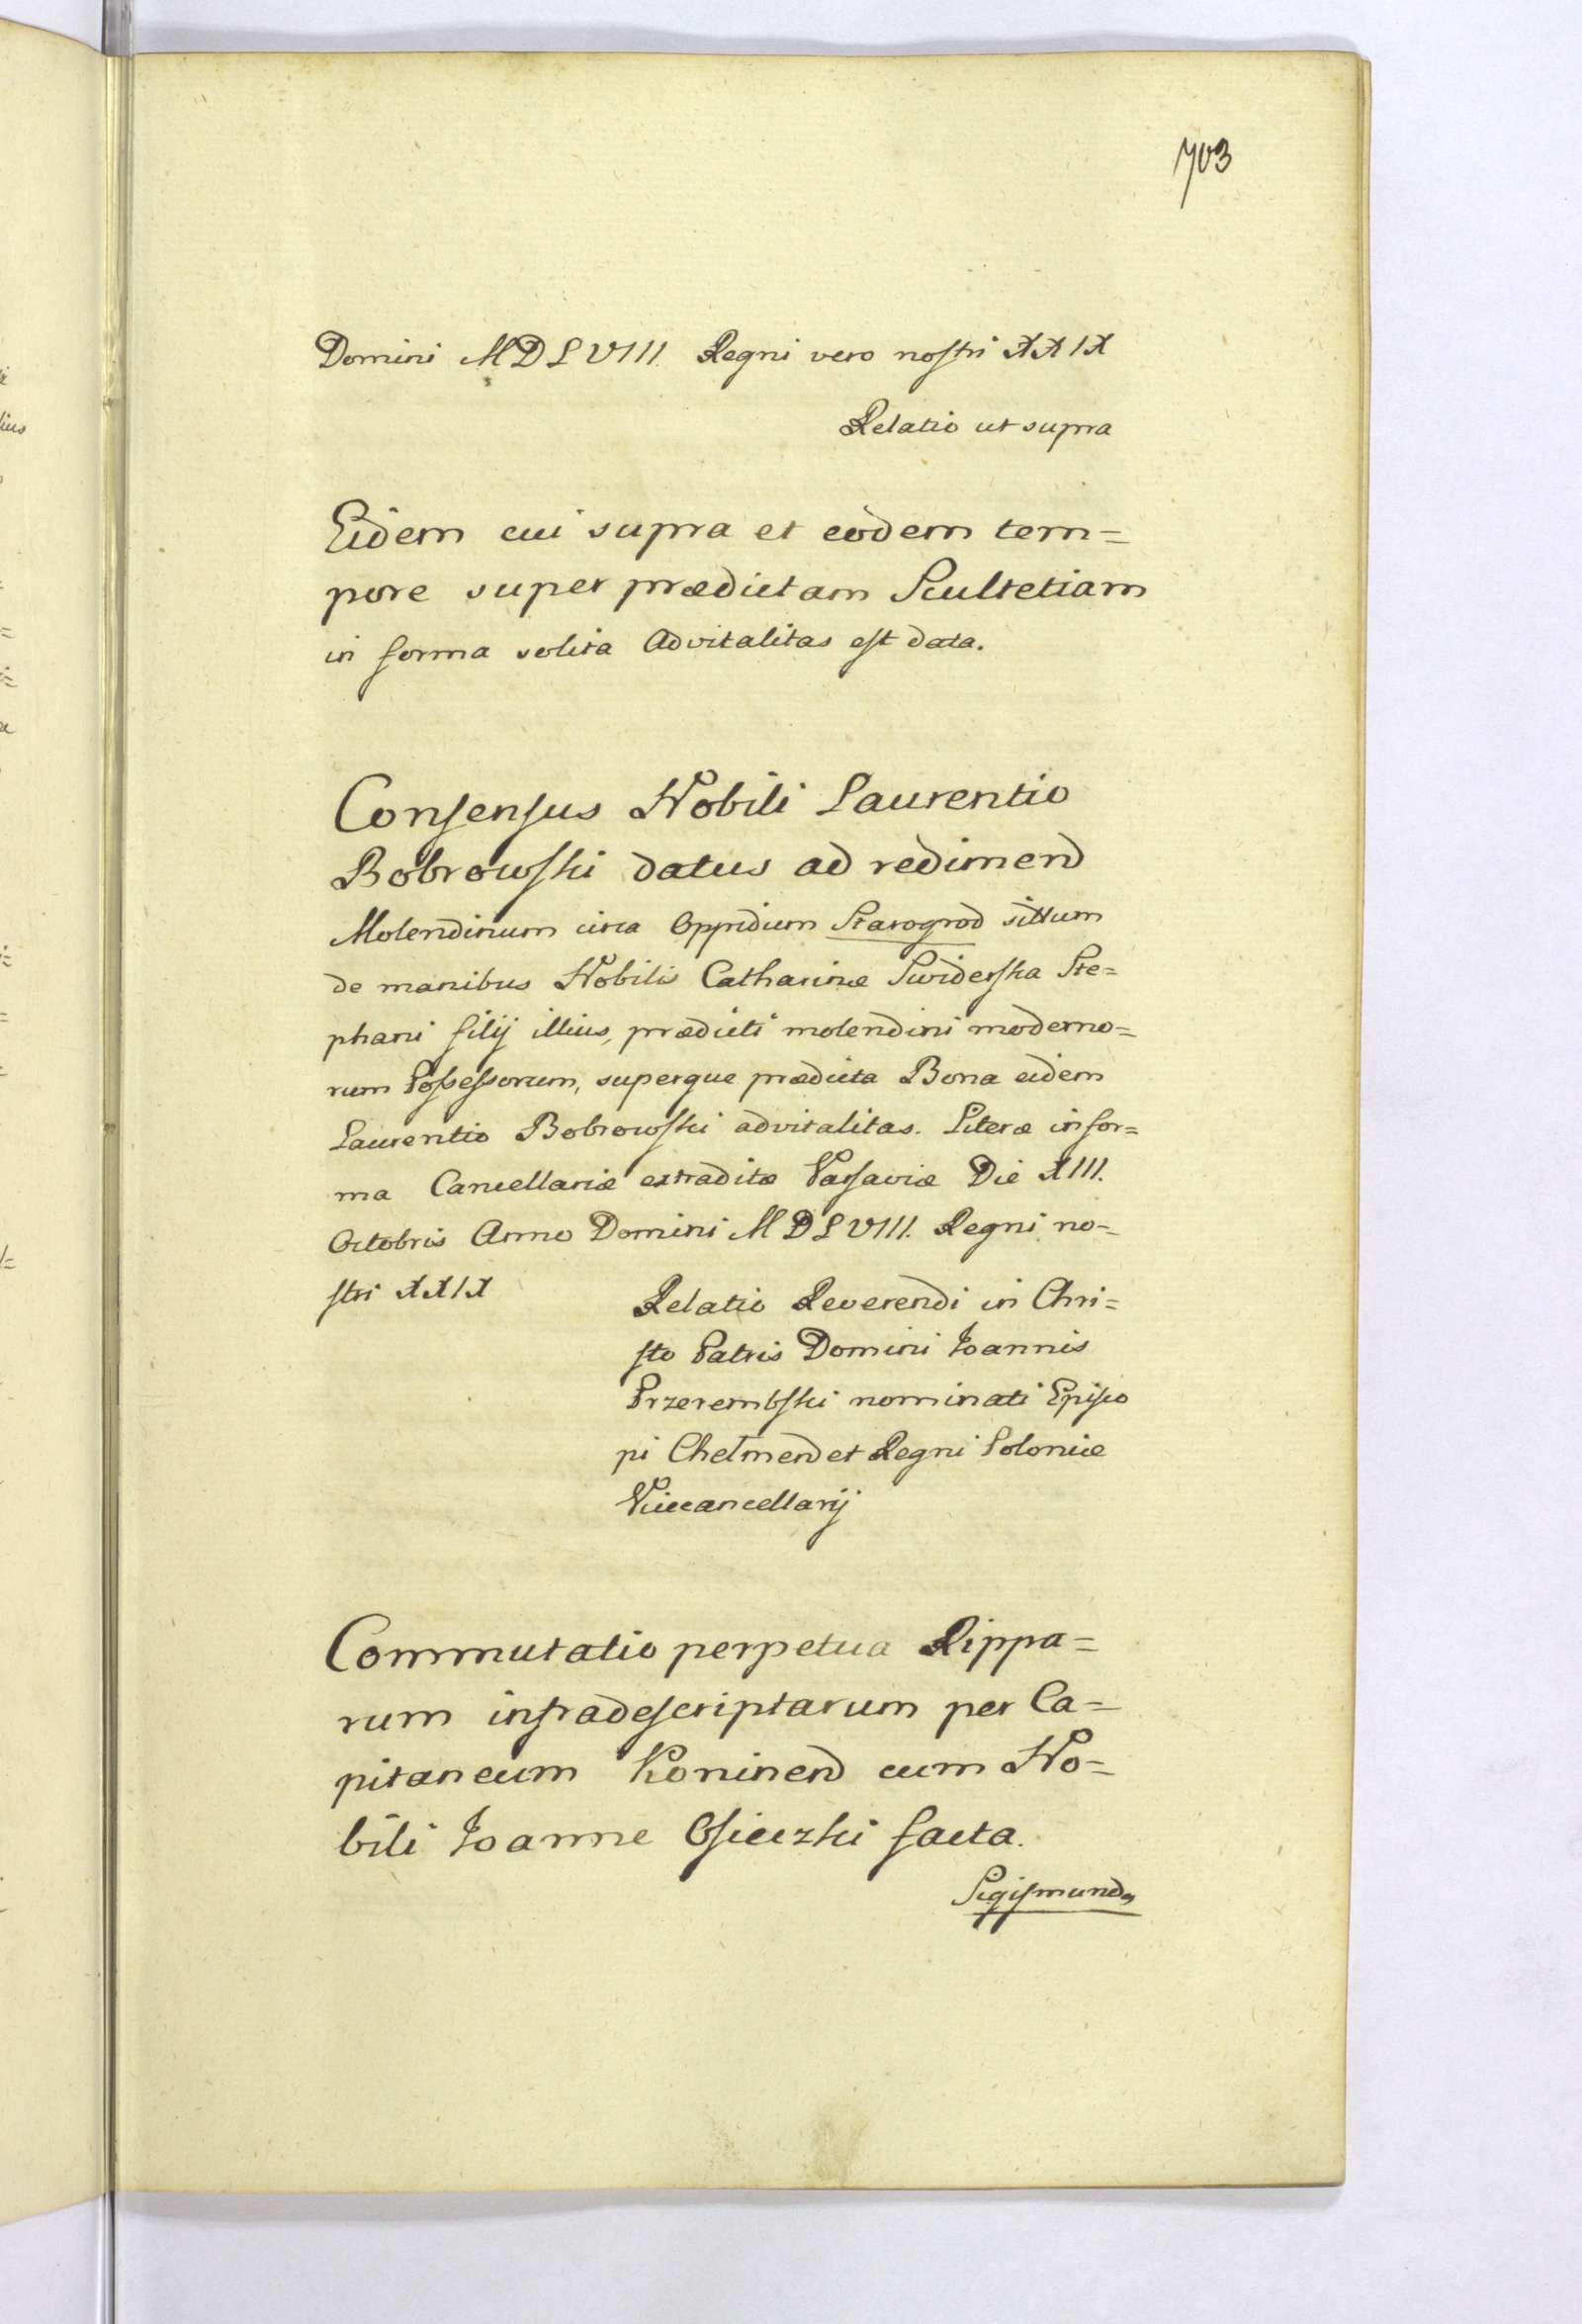 703
Domini MDLVIII. Regni vero nostri XXIX
Relatio ut supra
Eidem cui supra et eodem tem=
pore super prædictam Scultetiam
in forma solita Advitalitas est data.
Consensus Nobili Laurentio
Bobrowski datus ad redimend
Molendinum circa Oppidum Starogrod sittum
de manibus Nobilis Catharinæ Swiderska Ste=
phani filij illius, prædicti molendini moderno=
rum Possessorum, superque prædicta Bona eidem
Laurentio Bobrowski advitalitas. Literæ in for=
ma Cancellariæ extraditæ Varsaviæ Die XIII.
Octobris Anno Domini MDLVIII. Regni no=
stri XXIX
Relatio Reverendi in Chri=
sto Patris Domini Joannis
Przerembski nominati Episco
pi Chelmend et Regni Poloniæ
Vicecancellarij
Commutatio perpetua Rippa=
rum infradescriptarum per Ca=
pitaneum Koninend cum No=
bili Joanne Osieczki facta.
Sigismund9